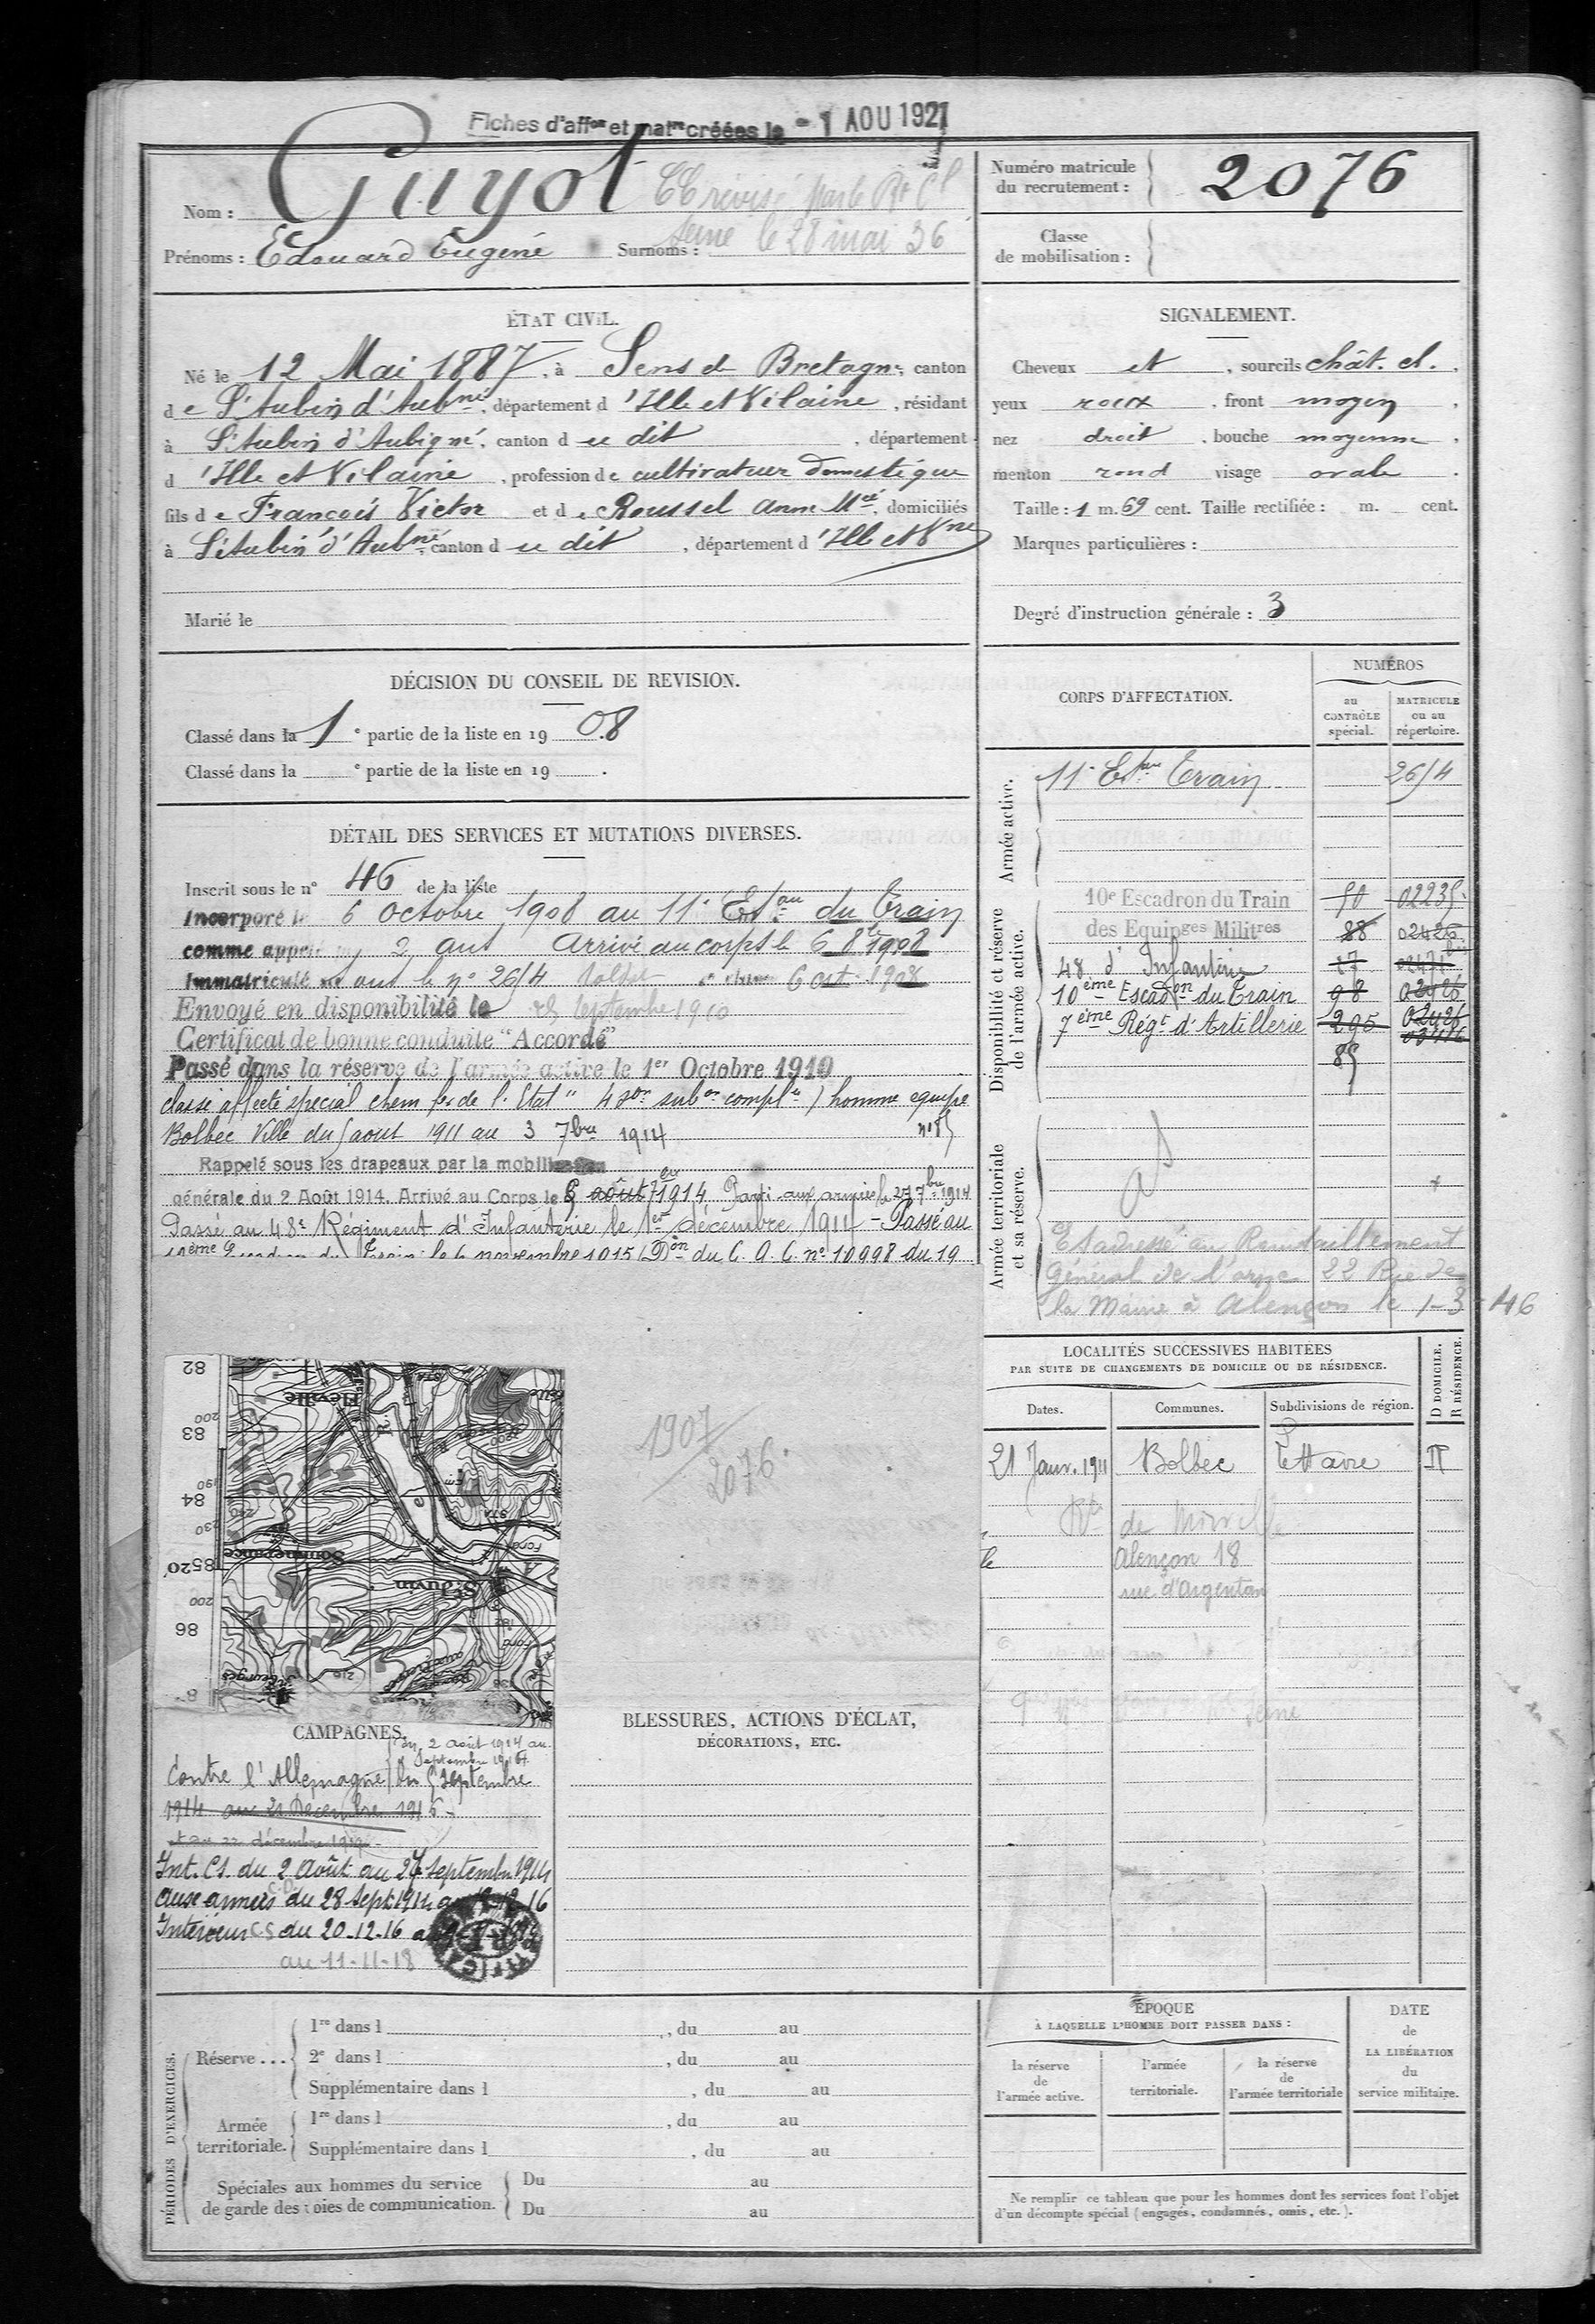 Fiches d'affon et matre créées le - 1 AOU 1927
Nom : Guyot
CC révisé par le
Seine le 28 mai 36
Prénoms : Edouard Eugène Surnoms :
Numéro matricule
du recrutement : 2076
Classe
de mobilisation :
ÉTAT CIVIL.
Né le 12 Mai 1887, à Sens de Bretagne, canton
de St Aubin d'Aubné, département d'Ille et Vilaine, résidant
à St Aubin d'Aubigné, canton du dit, département
d'Ille et Vilaine, profession de cultivateur domestique
fils de François Victor et de Roussel Anne Mie, domiciliés
à St Aubin d'Aubné, canton du dit, département d'Ille et Vne
Marié le
SIGNALEMENT.
Cheveux et, sourcils chât. cl.,
yeux roux, front moyen,
nez droit, bouche moyenne,
menton rond visage ovale.
Taille : 1 m. 69 cent. Taille rectifiée : m. cent.
Marques particulières :
Degré d'instruction générale : 3
DÉCISION DU CONSEIL DE REVISION.
Classé dans la 1e partie de la liste en 1908
Classé dans la e partie de la liste en 19 .
DÉTAIL DES SERVICES ET MUTATIONS DIVERSES.
Inscrit sous le n° 46 de la liste
Incorporé le 6 octobre 1908 au 11e Eson du Train
comme appelé 2 ans Arrivé au corps le 6 8bre 1908
Immatriculé sous le n° 2614 soldat 6 oct. 1908
Envoyé en disponibilité le 25 septembre 1910
Certificat de bonne conduite "Accordé"
Passé dans la réserve de l'armée active le 1er Octobre 1910
classé affecté spécial chem fer de l'Etat 4 son subon comple homme équipe
Bolbec Ville du 5 août 1911 au 3 7bre 1914 n° 85
Rappelé sous les drapeaux par la mobilisation
générale du 2 Août 1914. Arrivé au Corps le 5 août 7bre 1914 Parti aux armées le 27 7bre 1914
Passé au 48e Régiment d'Infanterie le 1er décembre 1914 - Passé au
10ème Escadron du Train le 6 novembre 1915 (Don du C.A.C. n° 10998 du 19
CORPS D'AFFECTATION.
NUMÉROS
au CONTRÔLE spécial.
MATRICULE ou au répertoire.
Armée active.
11e Eson Train 2614
Disponibilité et réserve de l'armée active.
10e Escadron du Train 50 02235
des Equipges Militres 28 02426
48e d'Infanterie 27
10ème Escadon du Train 98 02426
7ème Régt d'Artillerie 295 02426
85
Armée territoriale et sa réserve.
AS
Est adressé au Ravitaillement
Général de l'orne 22 Rue de
la Mairie à Alençon le 1-3-46
LOCALITÉS SUCCESSIVES HABITÉES
PAR SUITE DE CHANGEMENTS DE DOMICILE OU DE RÉSIDENCE.
Dates. Communes. Subdivisions de région.
D DOMICILE.
R RÉSIDENCE.
21 Janv. 1911 Bolbec Le Havre R
Rte de Mirville
Alençon 18
rue d'Argentan
1907
2076
82
83
84
8520
86
Fléville
Sommerance
St Juvin
St Georges
CAMPAGNES.
du 2 août 1914 au
Septembre 1914
Contre l'Allemagne du 5 septembre
1914 au 21 Décembre 1916
et au 22 décembre
Int. CS. du 2 Août au 27 septembre 1914
Aux armées du 28 Sept 1914 au 19-12-16
Intérieur CS du 20-12-16 au
au 11-11-18
BLESSURES, ACTIONS D'ÉCLAT,
DÉCORATIONS, ETC.
PÉRIODES D'EXERCICES.
Réserve ...
1re dans l , du au
2e dans l , du au
Supplémentaire dans l , du au
Armée territoriale.
1re dans l , du au
Supplémentaire dans l , du au
Spéciales aux hommes du service
de garde des voies de communication.
Du au
Du au
ÉPOQUE
À LAQUELLE L'HOMME DOIT PASSER DANS :
la réserve de l'armée active.
l'armée territoriale.
la réserve de l'armée territoriale
DATE de LA LIBÉRATION du service militaire.
Ne remplir ce tableau que pour les hommes dont les services font l'objet
d'un décompte spécial (engagés, condamnés, omis, etc.).